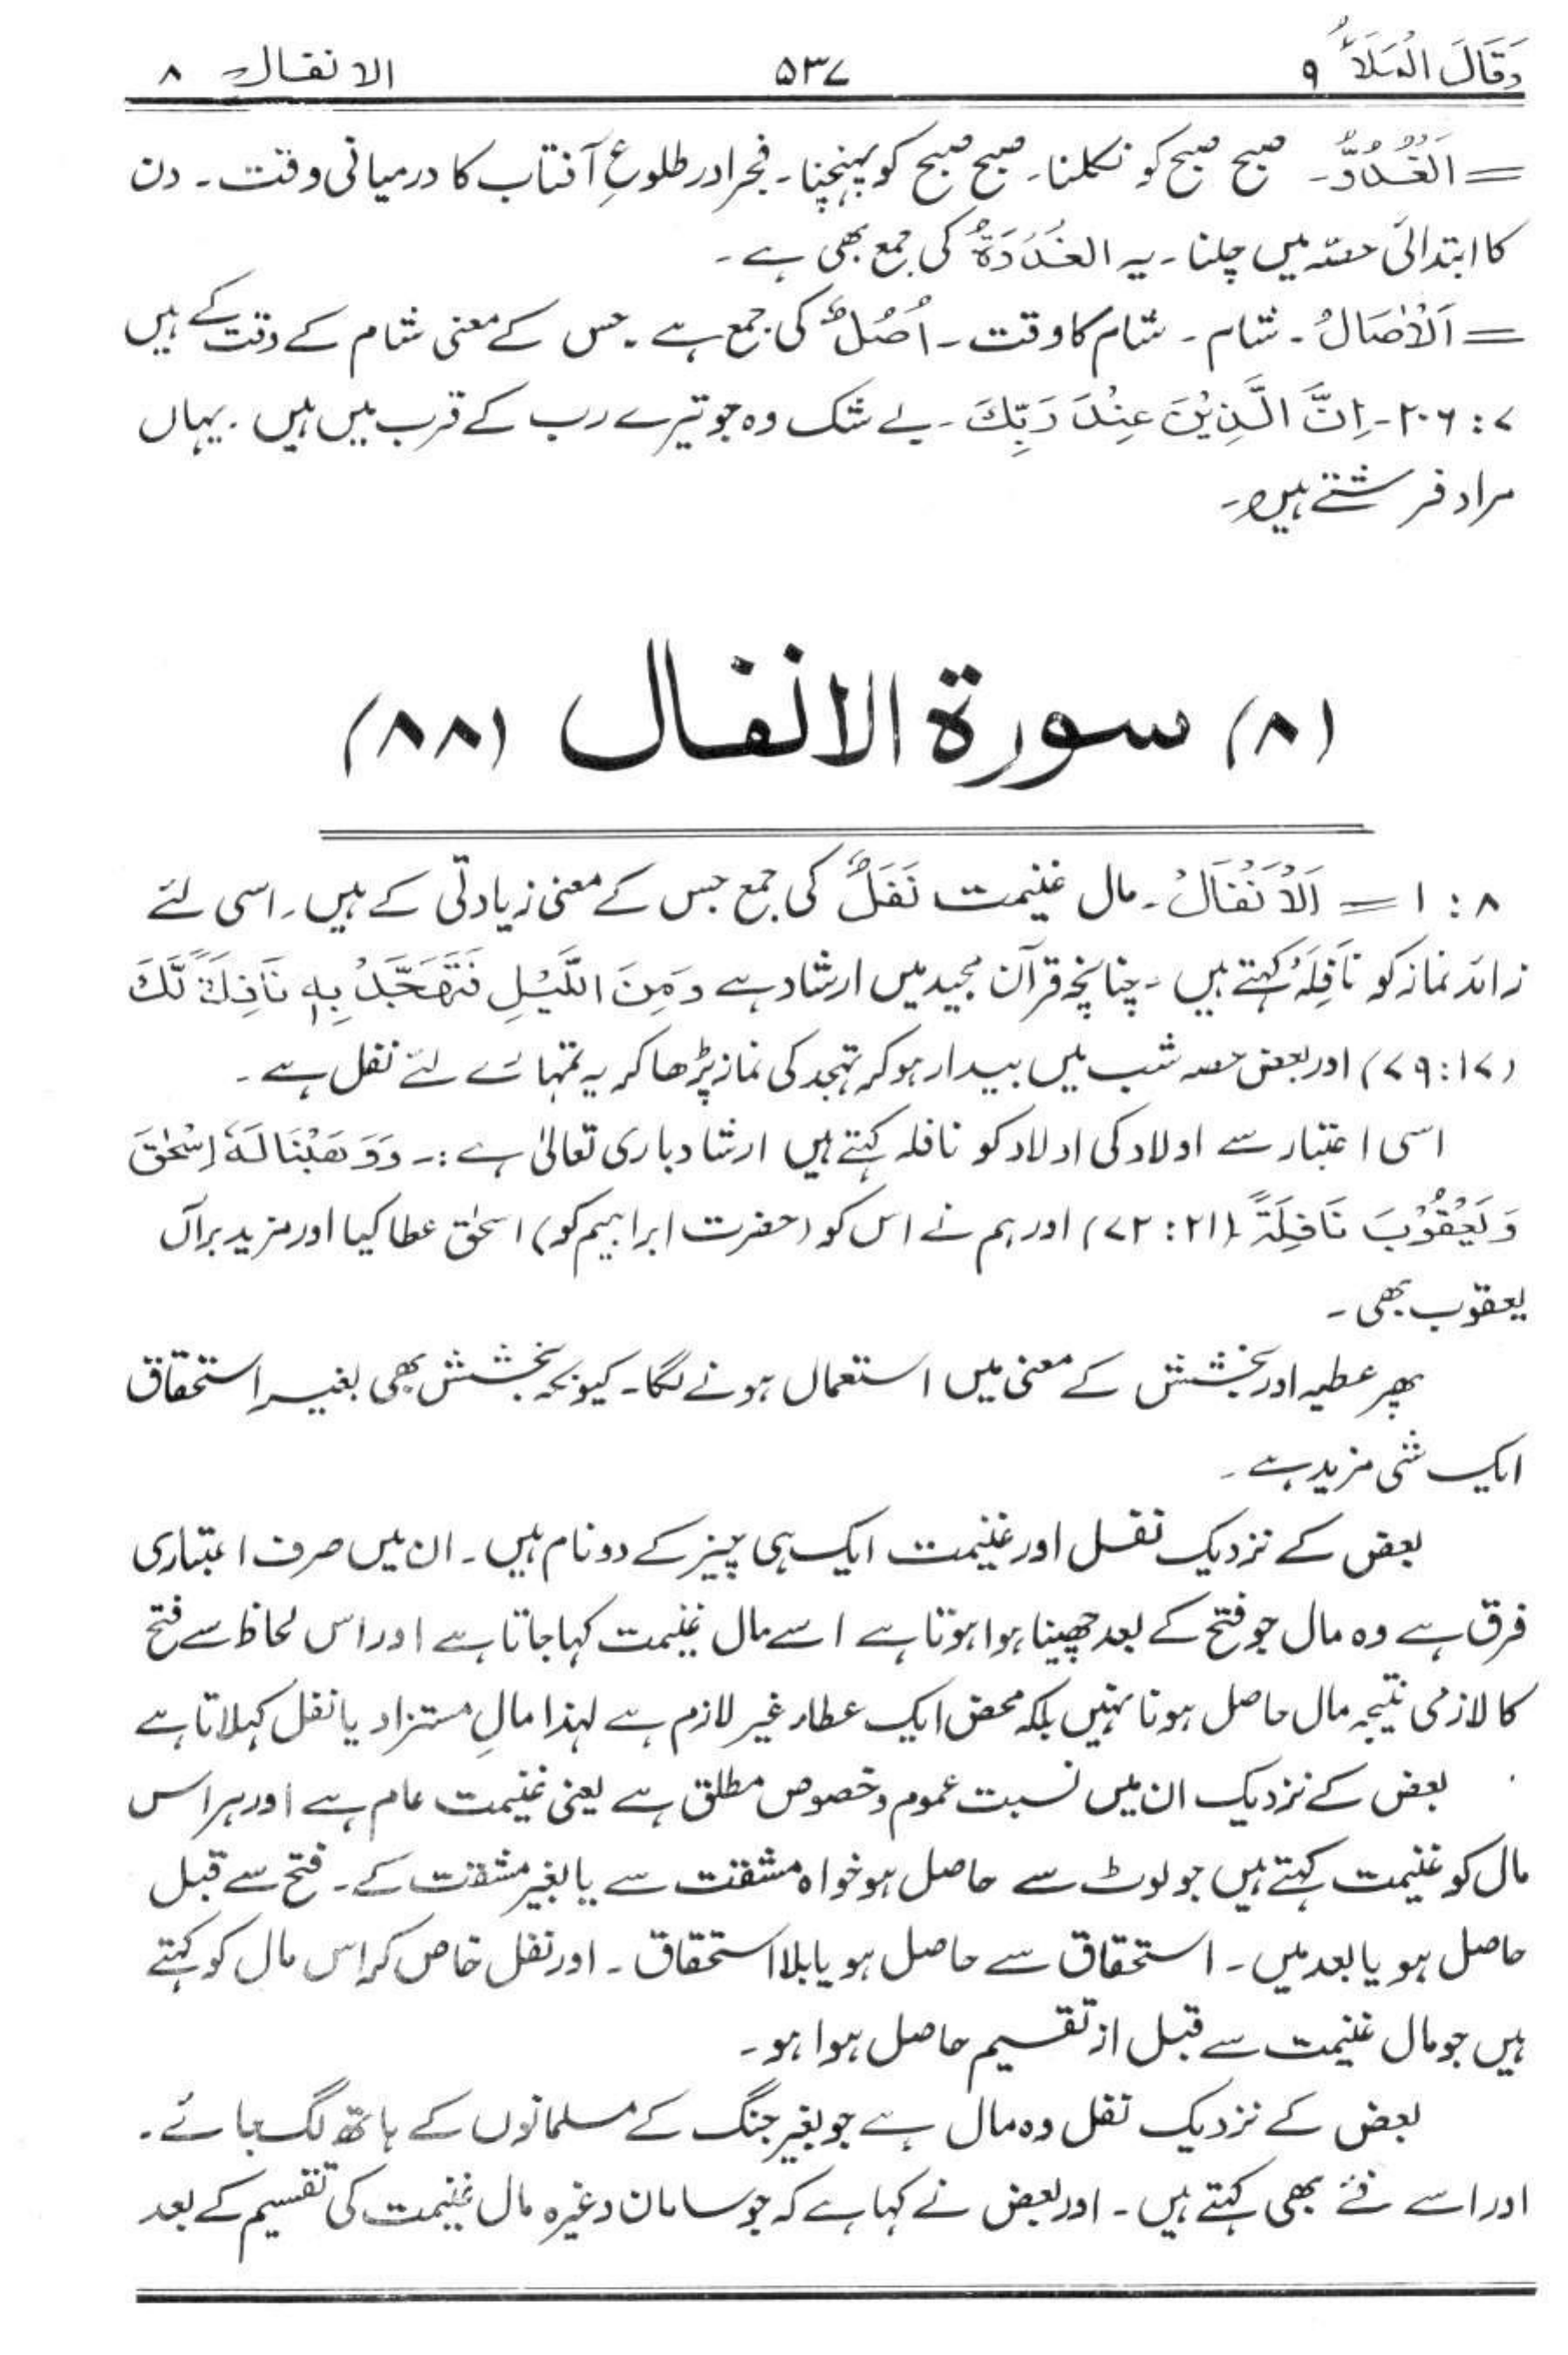 وَقَالَ الْمَلَأُ ۹ ۵۳۷ الانفال ۸
= اَلْغُدُوُّ۔ صبح صبح کو نکلنا۔ صبح صبح کو پہنچنا۔ فجر اور طلوعِ آفتاب کا درمیانی وقت۔ دن
کا ابتدائی حصّہ میں چلنا۔ یہ الغَدَوَۃُ کی جمع بھی ہے۔
= اَلْاٰصَالُ۔ شام۔ شام کا وقت۔ اُصُلٌ کی جمع ہے۔ جس کے معنی شام کے وقت کے ہیں
۷: ۲۰۶۔ اِنَّ الَّذِیْنَ عِنْدَ رَبِّكَ۔ بے شک وہ جو تیرے رب کے قرب میں ہیں۔ یہاں
مراد فرشتے ہیں۔
(۸) سورۃ الانفال (۸۸)
۸: ۱ = اَلْاَنْفَالُ۔ مال غنیمت نَفَلٌ کی جمع جس کے معنی زیادتی کے ہیں۔ اسی لئے
زائد نماز کو نَافِلَہ کہتے ہیں۔ چنانچہ قرآن مجید میں ارشاد ہے وَمِنَ اللَّیْلِ فَتَهَجَّدْ بِهٖ نَافِلَةً لَّكَ
(۱۷:۷۹) اور بعض حصہ شب میں بیدار ہو کر تہجد کی نماز پڑھا کر یہ تمہارے لئے نفل ہے۔
اسی اعتبار سے اولاد کی اولاد کو نافلہ کہتے ہیں ارشاد باری تعالیٰ ہے:۔ وَوَهَبْنَا لَهٗ اِسْحٰقَ
وَیَعْقُوْبَ نَافِلَةً (۲۱: ۷۲) اور ہم نے اس کو (حضرت ابراہیم کو) اسحٰق عطا کیا اور مزید برآں
یعقوب بھی۔
پھر عطیہ اور بخشش کے معنی میں استعمال ہونے لگا۔ کیونکہ بخشش بھی بغیر استحقاق
ایک شی مزید ہے۔
بعض کے نزدیک نفل اور غنیمت ایک ہی چیز کے دو نام ہیں۔ ان میں صرف اعتباری
فرق ہے وہ مال جو فتح کے بعد چھینا ہوا ہوتا ہے اسے مال غنیمت کہا جاتا ہے اور اس لحاظ سے فتح
کا لازمی نتیجہ مال حاصل ہونا نہیں بلکہ محض ایک عطار غیر لازم ہے لہذا مالِ مستزاد یا نفل کہلاتا ہے
بعض کے نزدیک ان میں نسبت عموم و خصوص مطلق ہے یعنی غنیمت عام ہے اور ہر اس
مال کو غنیمت کہتے ہیں جو لوٹ سے حاصل ہو خواہ مشقت سے یا بغیر مشقت کے۔ فتح سے قبل
حاصل ہو یا بعد میں۔ استحقاق سے حاصل ہو یا بلا استحقاق۔ اور نفل خاص کر اس مال کو کہتے
ہیں جو مال غنیمت سے قبل از تقسیم حاصل ہوا ہو۔
بعض کے نزدیک نفل وہ مال ہے جو بغیر جنگ کے مسلمانوں کے ہاتھ لگ جائے۔
اور اسے فئے بھی کہتے ہیں۔ اور بعض نے کہا ہے کہ جو سامان وغیرہ مال غنیمت کی تقسیم کے بعد